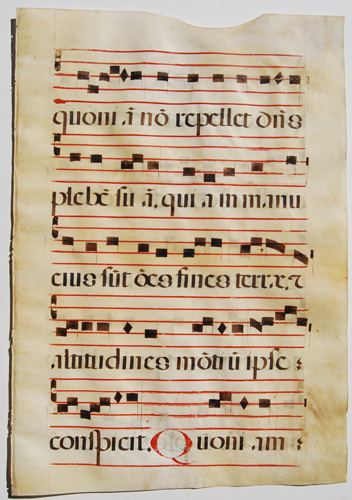 quoni ā nō repellet dn̄s
plebē su ā, qui a in manu
eius sūt ōēs fines terræ, ⁊
altitudines mōtiū ipse :
conspicit. Quoni am :